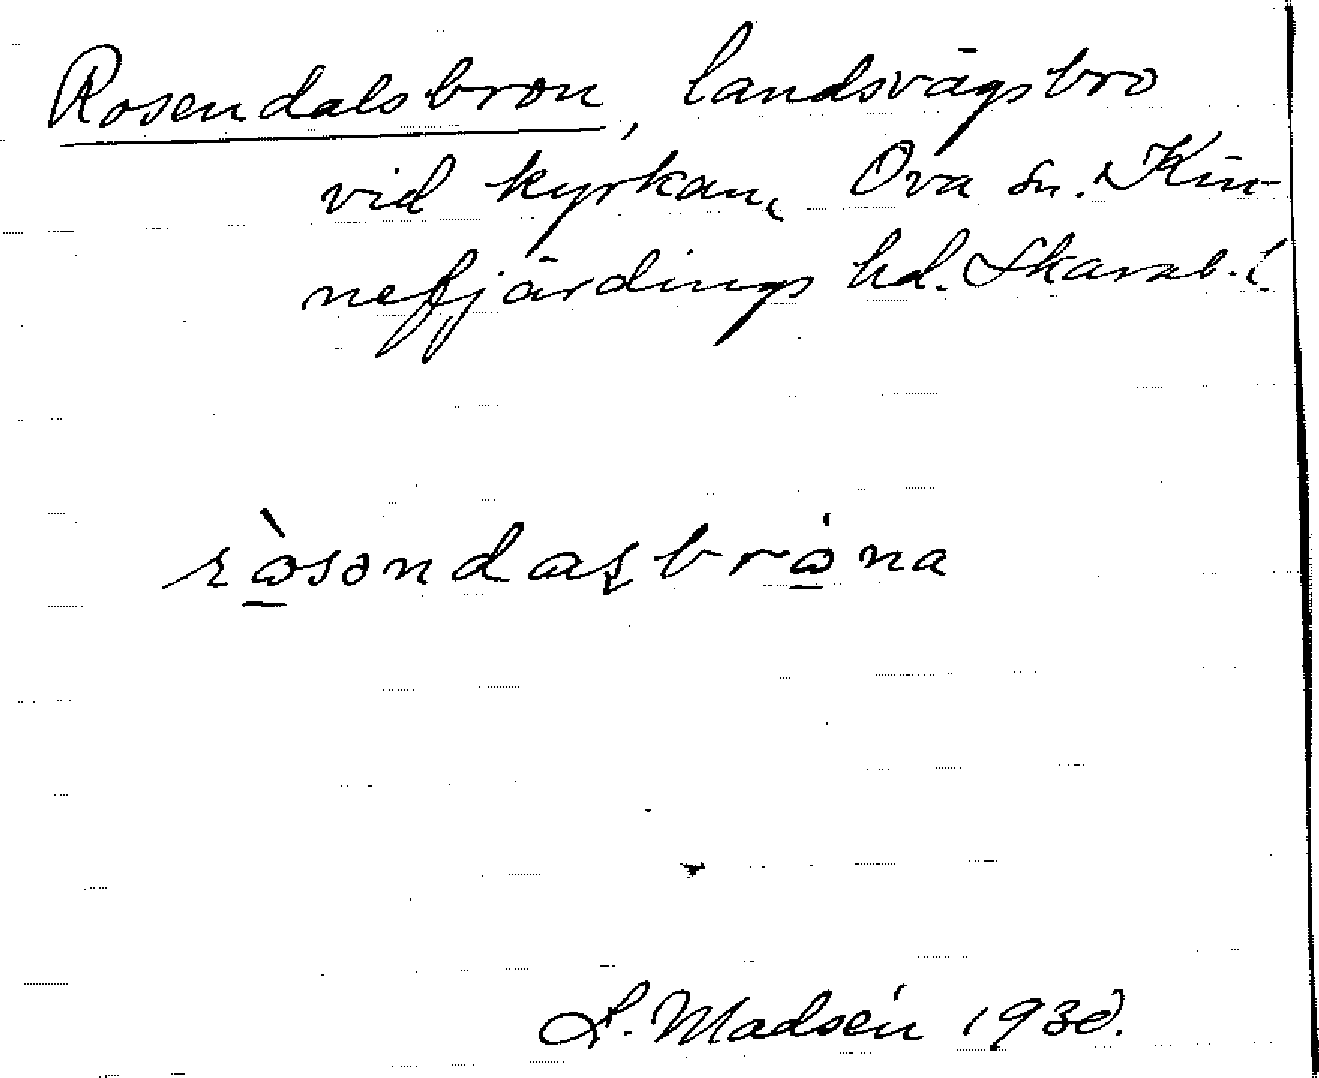 Rosendalsbron, landsvägsbro
vid kyrkan, Ova sn. Kin-
nefjärdings hd. Skarab. l.
ròsəndasbrona
L. Madsén 1930.